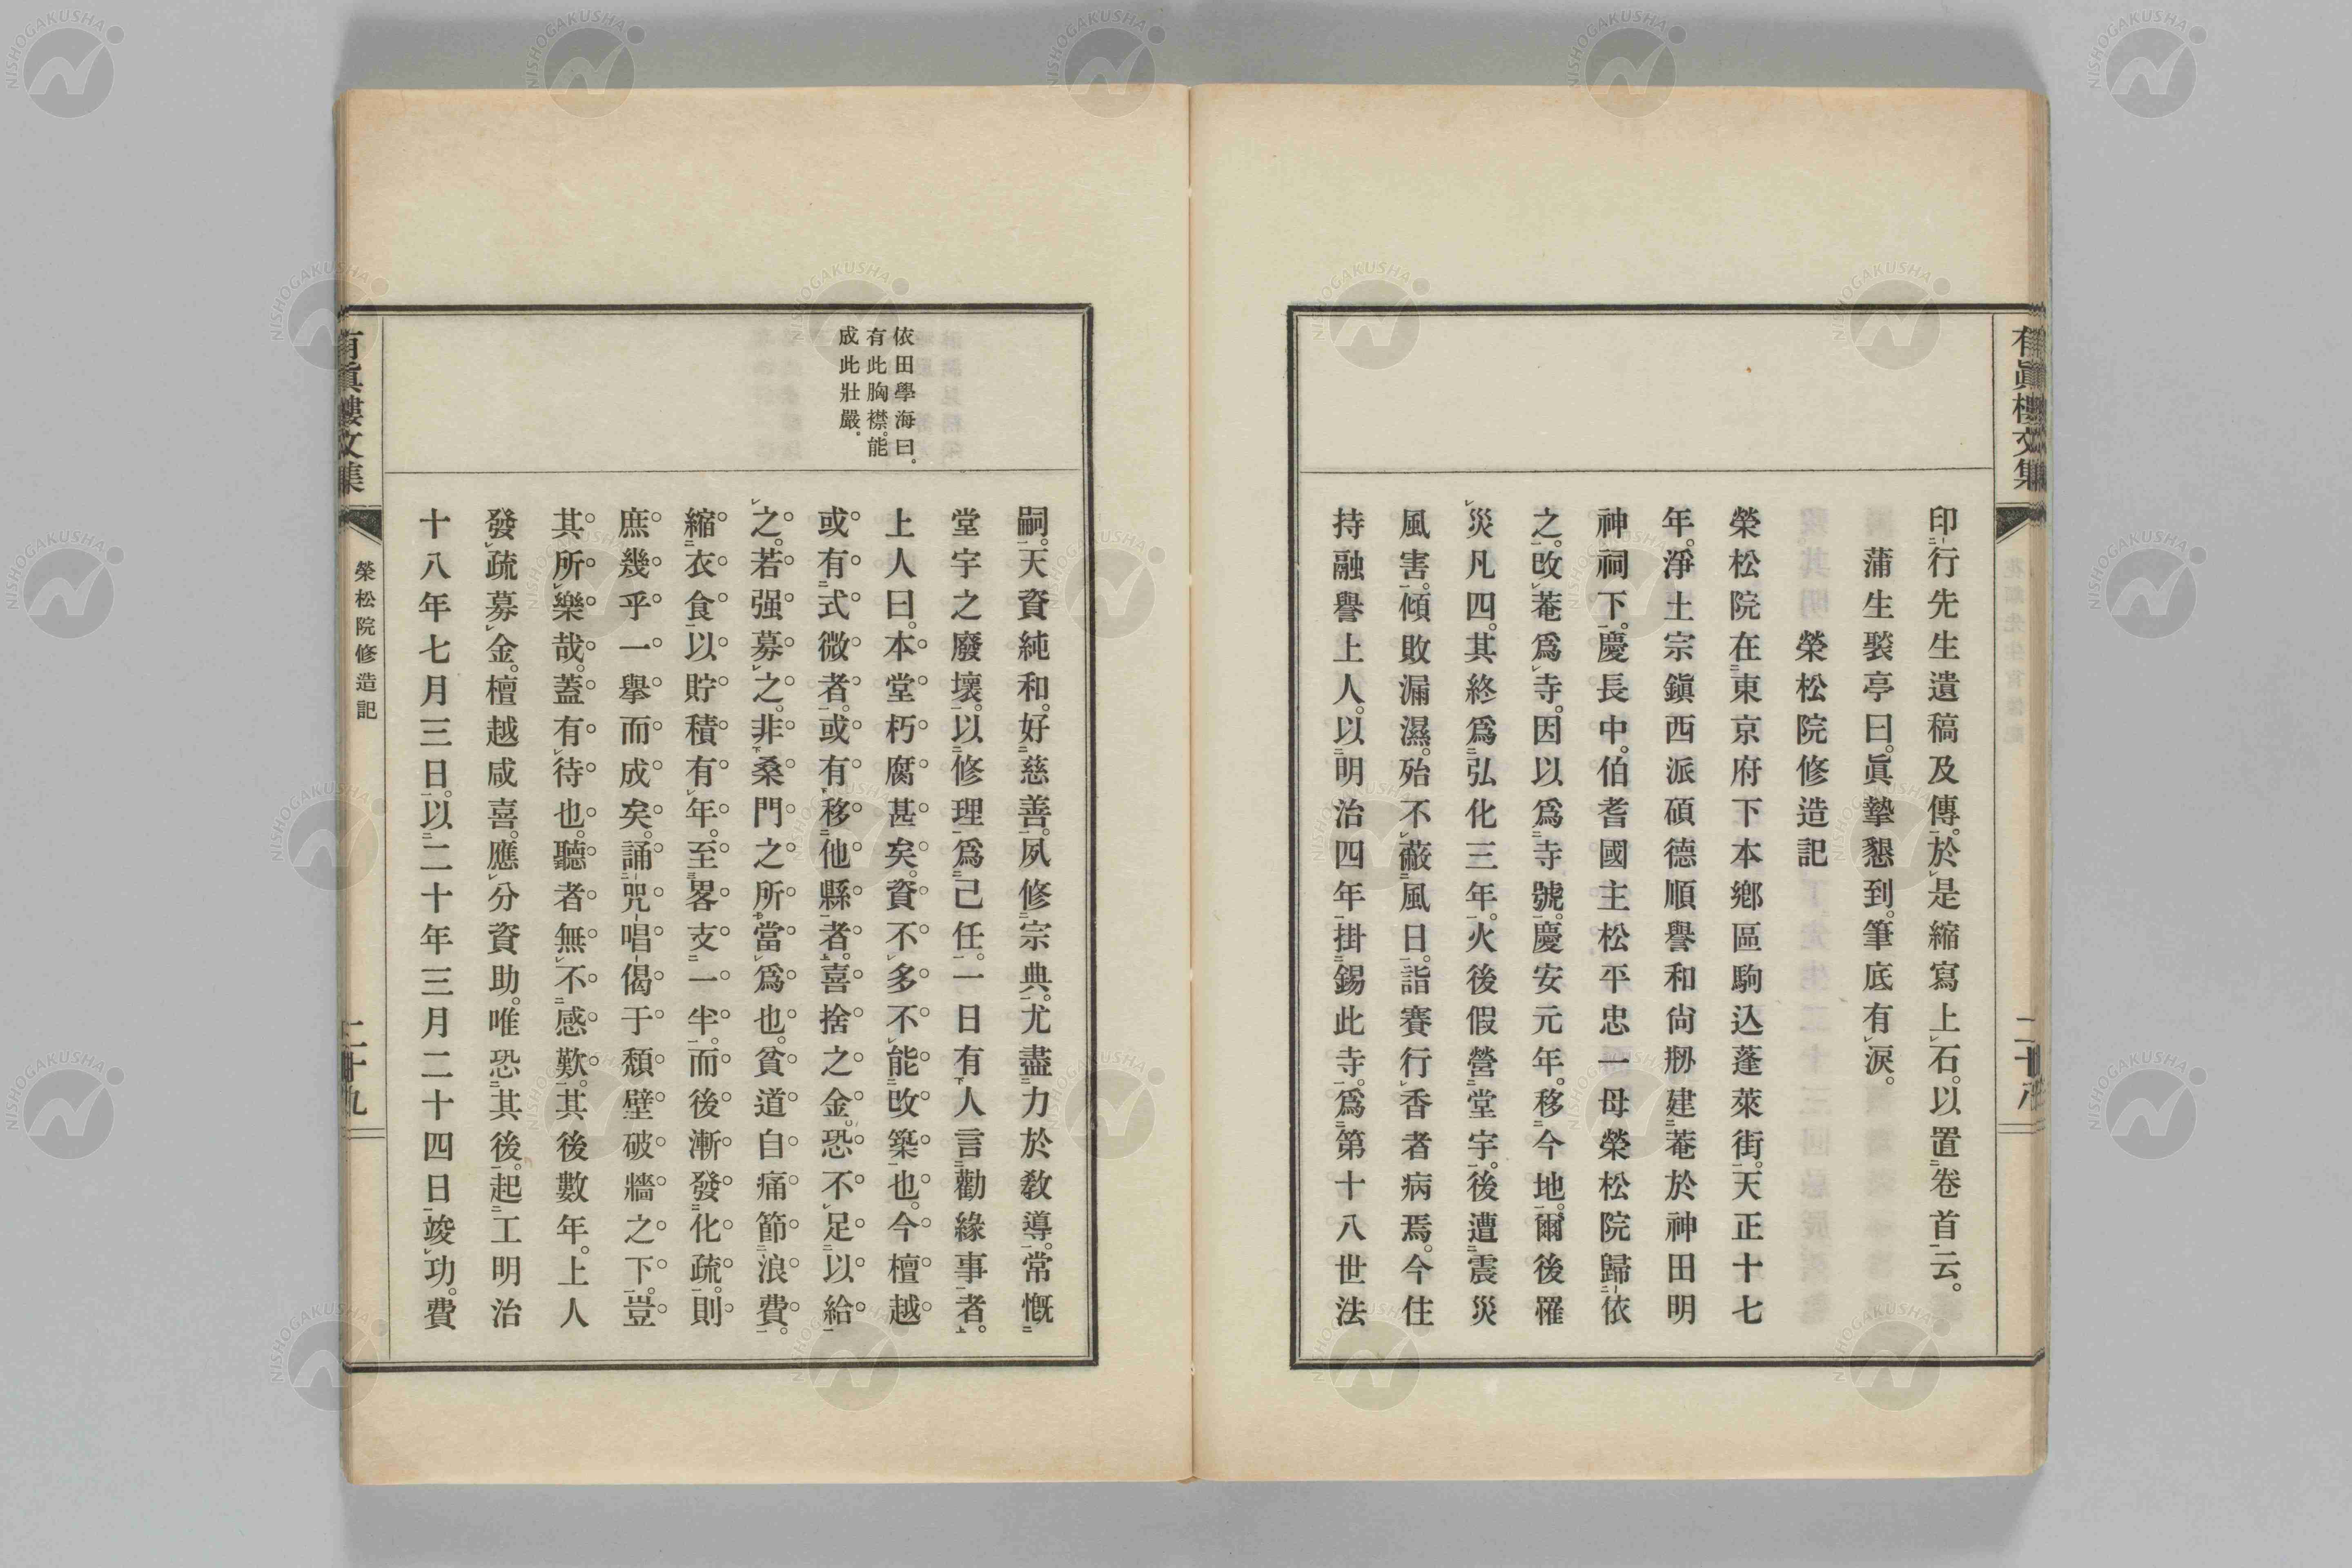 有眞樓文集
二十八
印行先生遺稿及傳。於是縮寫上石。以置卷首云。
蒲生褧亭曰。眞摯懇到。筆底有淚。
榮松院修造記
榮松院在東京府下本鄕區駒込蓬萊街。天正十七
年。淨土宗鎭西派碩德順譽和尙剏建菴於神田明
神祠下。慶長中。伯耆國主松平忠一母榮松院歸依
之。改菴爲寺。因以爲寺號。慶安元年。移今地。爾後罹
災凡四。其終爲弘化三年。火後假營堂宇。後遭震災
風害。傾敗漏濕。殆不蔽風日。詣賽行香者病焉。今住
持融譽上人。以明治四年掛錫此寺。爲第十八世法
依田學海曰。
有此胸襟。能
成此壯嚴。
嗣。天資純和。好慈善。夙修宗典。尤盡力於敎導。常慨
堂宇之廢壞。以修理爲己任。一日有人言勸緣事者。
上人曰。本堂朽腐甚矣。資不多不能改築也。今檀越
或有式微者。或有移他縣者。喜捨之金。恐不足以給
之。若强募之。非桑門之所當爲也。貧道自痛節浪費。
縮衣食以貯積有年。至畧支一半。而後漸發化疏。則
庶幾乎一擧而成矣。誦咒唱偈于頽壁破牆之下。豈
其所樂哉。蓋有待也。聽者無不感歎。其後數年。上人
發疏募金。檀越咸喜。應分資助。唯恐其後。起工明治
十八年七月三日。以二十年三月二十四日竣功。費
有眞樓文集
榮松院修造記
二十九
NISHOGAKUSHA